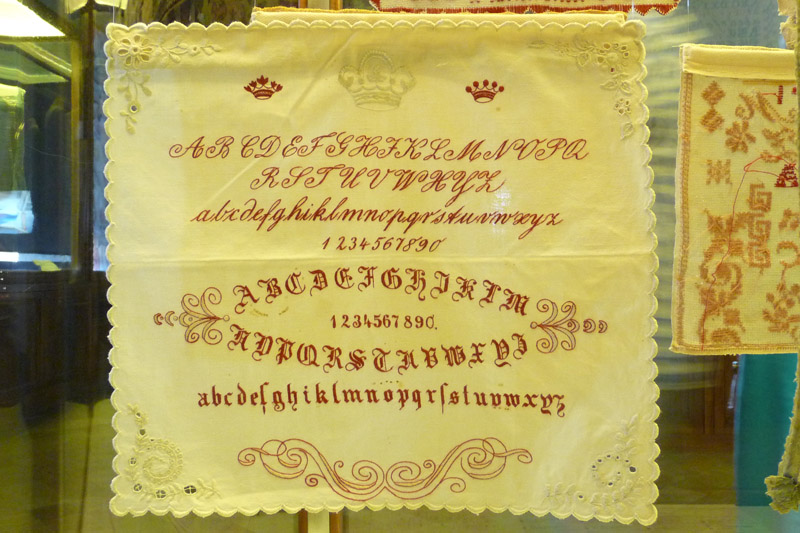 ABCDEFGHIKLMNOPQ
RSTUVWXYZ
abcdefghiklmnopqrstuvwxyz
1234567890
ABCDEFGHIKLM
1234567890.
NOPQRSTUVWXYZ
abcdefghiklmnopqrſstuvwxyz